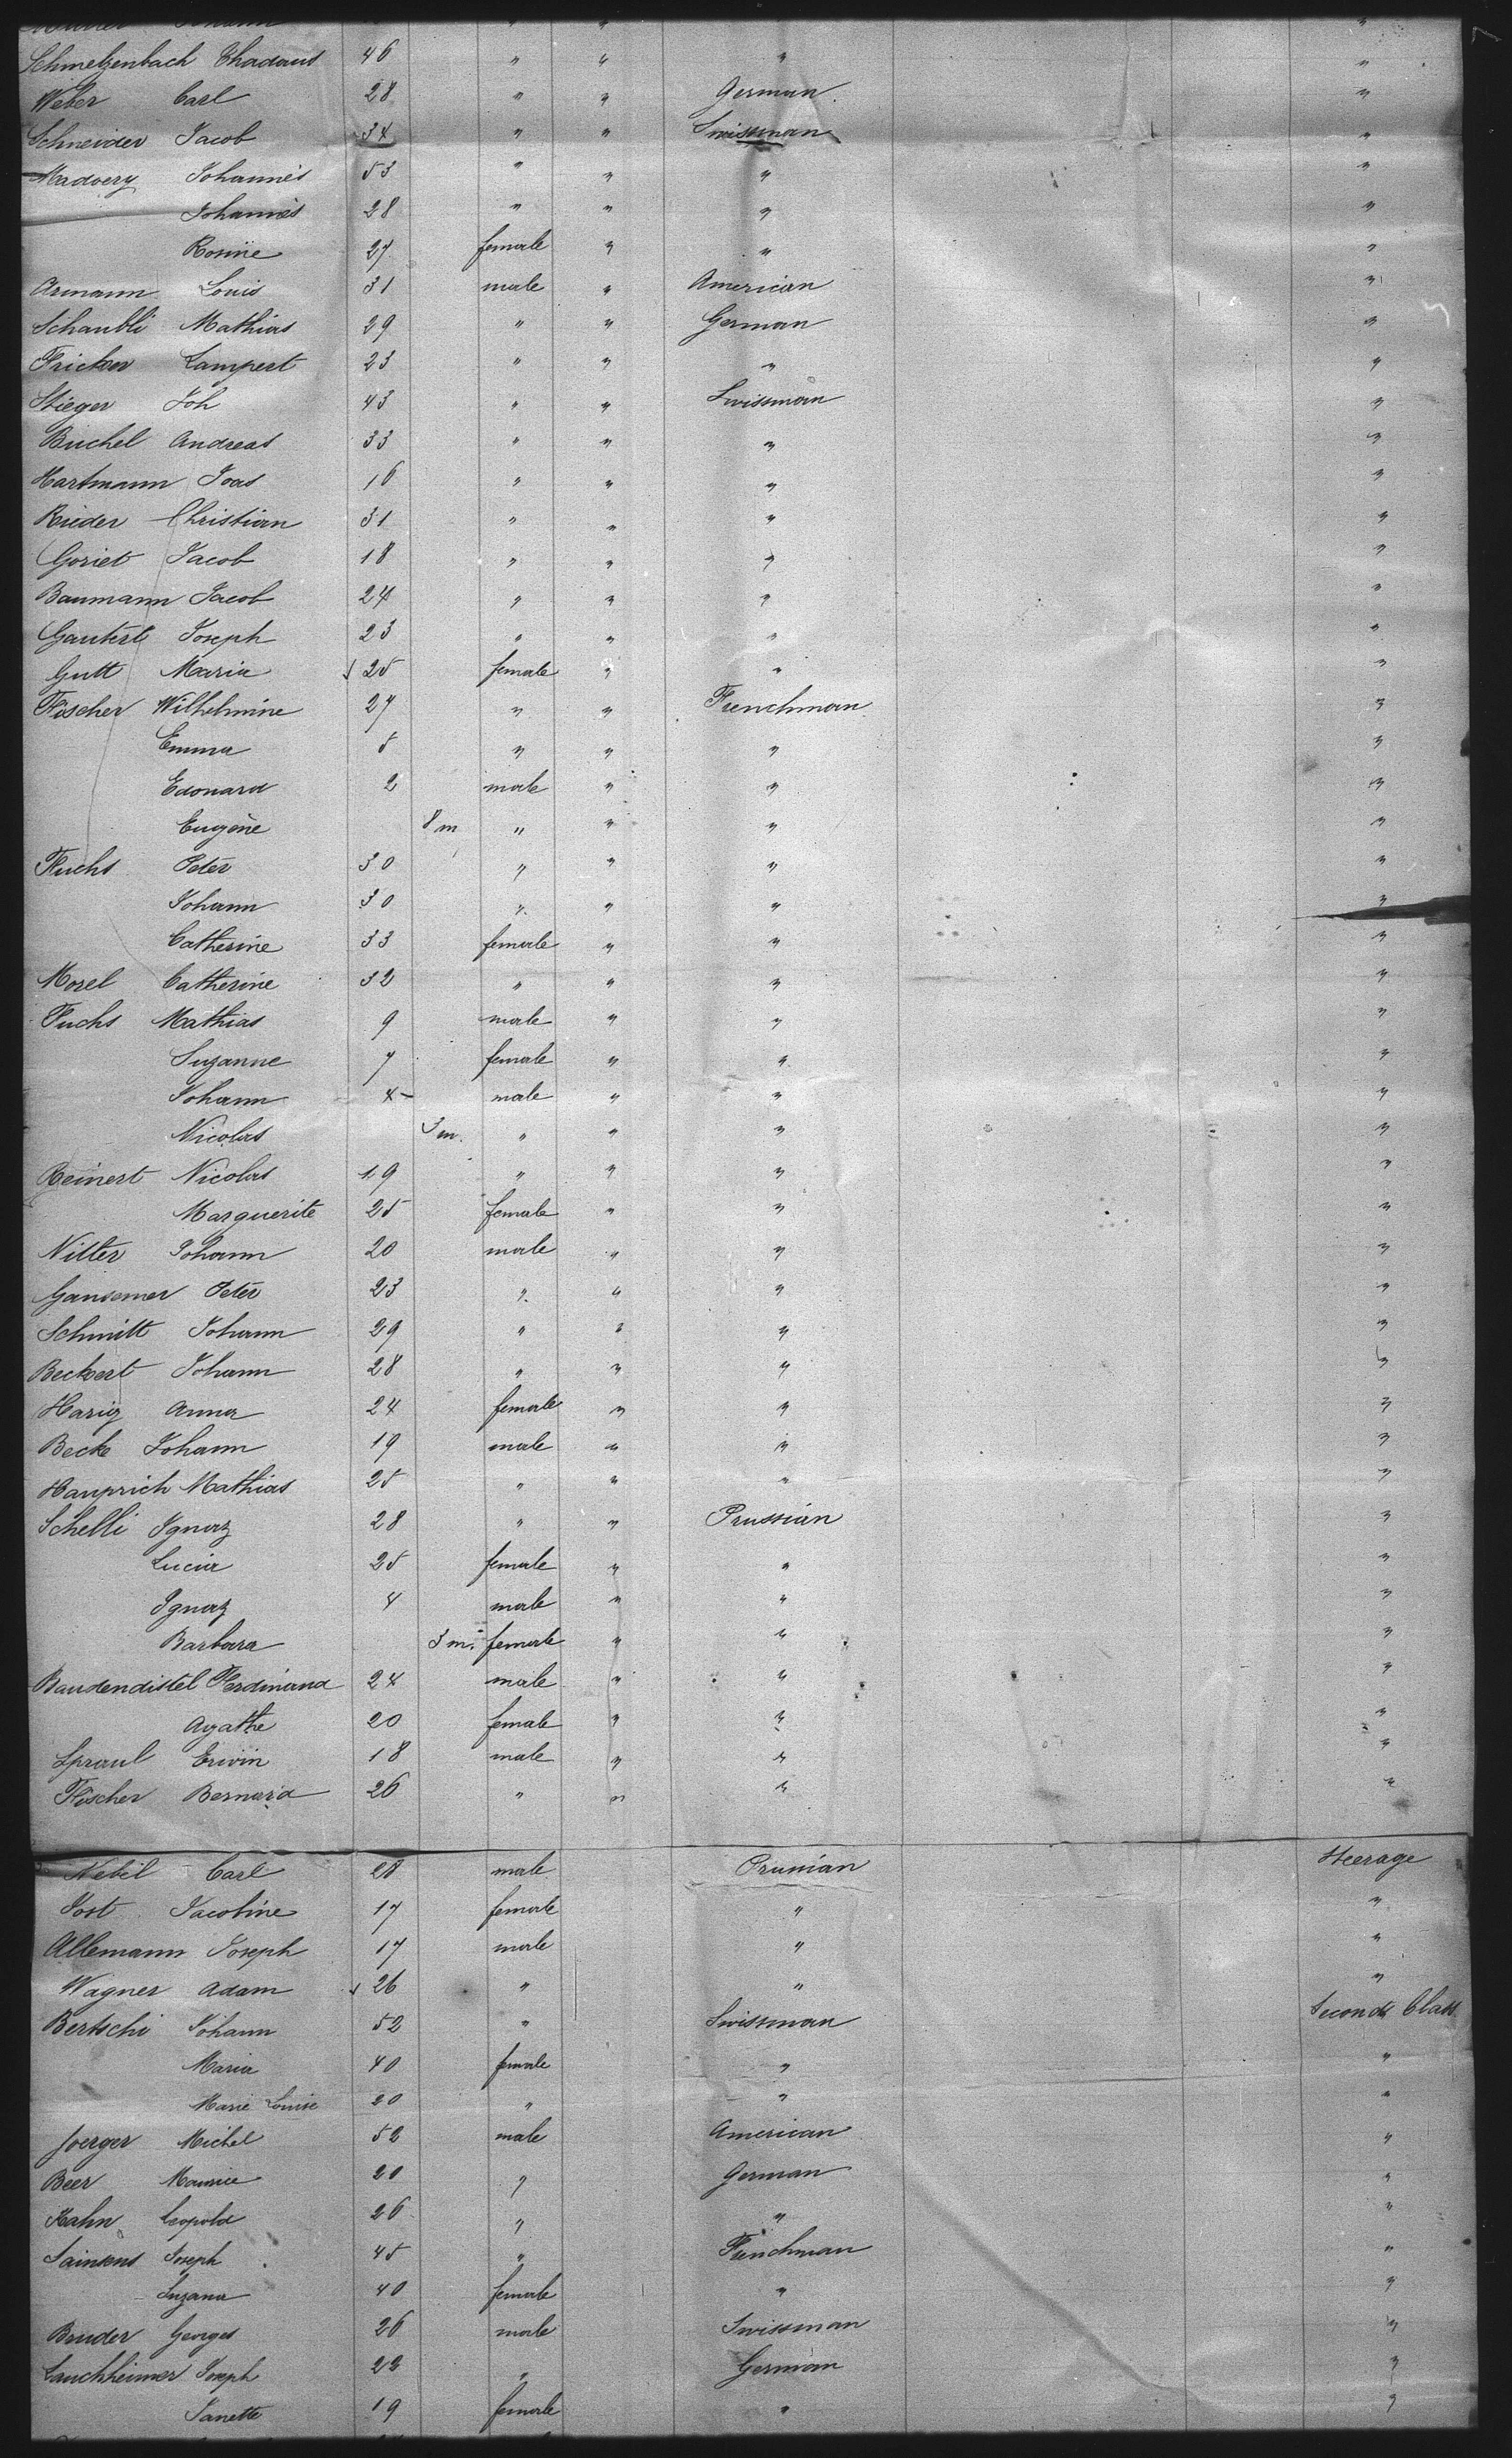 Schmelzenbach Thadaus 46 " " " "
Weber Carl 28 " " German "
Schneider Jacob 34 " " Swissman "
Madoery Johannes 53 " " " "
Johannes 28 " " " "
Rosine 27 female " " "
Armann Louis 31 male " American "
Schaubli Mathias 29 " " German "
Fricker Lampert 23 " " " "
Stieger Joh 43 " " Swissman "
Buchel Andreas 33 " " " "
Hartmann Joas 16 " " " "
Rieder Christian 31 " " " "
Goriet Jacob 18 " " " "
Baumann Jacob 24 " " " "
Gauterti Joseph 23 " " " "
Gutt Maria 25 female " " "
Fischer Wilhelmine 27 " " Frenchman "
Emma 5 " " " "
Edouard 2 male " " "
Eugène 8 m " " " "
Fuchs Peter 30 " " " "
Johann 30 " " " "
Catherine 33 female " " "
Morel Catherine 32 " " " "
Fuchs Mathias 9 male " " "
Suzanne 7 female " " "
Johann 4 male " " "
Nicolas 3 m. " " " "
Reinert Nicolas 19 " " " "
Marguerite 25 female " " "
Nitter Johann 20 male " " "
Gansemer Peter 23 " " " "
Schmitt Johann 29 " " " "
Beckert Johann 28 " " " "
Harig Anna 24 female " " "
Becke Johann 19 male " " "
Hauprich Mathias 25 " " " "
Schelli Ignaz 28 " " Prussian "
Lucia 25 female " " "
Ignaz 4 male " " "
Barbara 3 m. female " " "
Baudendistel Ferdinand 24 male " " "
Agathe 20 female " " "
Spraul Erwin 18 male " " "
Fischer Bernard 26 " " " "
Nebel Carl 28 male Prussian Steerage
Jost Jacobine 17 female " "
Allemann Joseph 17 male " "
Wagner Adam 26 " " "
Bertschi Johann 52 " Swissman Second Class
Maria 40 female " "
Marie Louise 20 " " "
Joerger Michel 52 male American "
Beer Maurice 20 " German "
Kahn Leopold 26 " " "
Sainsons Joseph 45 " Frenchman "
Suzana 40 female " "
Bruder Georges 26 male Swissman "
Lauchheimer Joseph 22 " German "
Janette 19 female " "